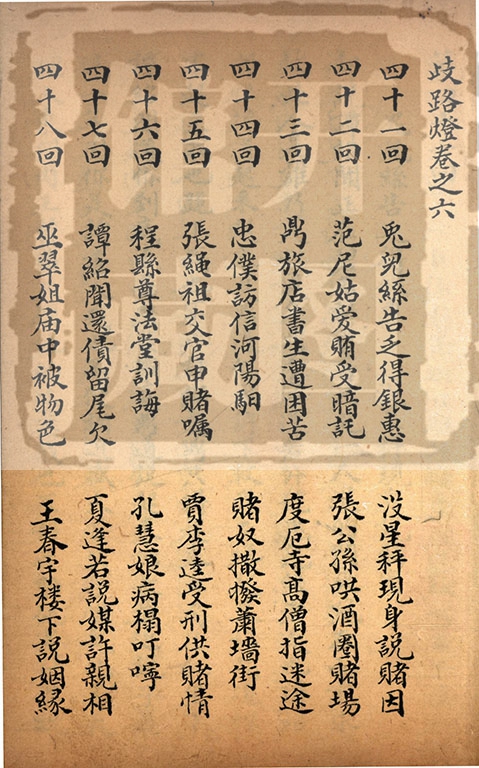 歧路燈卷之六
四十一回 兎兒絲告乏得銀惠 沒星秤現身說賭因
四十二回 范尼姑爱賄受暗託 張公孫哄酒圈賭場
四十三回 鼎旅店書生遭困苦 度厄寺高僧指迷途
四十四回 忠僕訪信河陽馹 賭奴撒撥蕭墻街
四十五回 張繩祖交官申賭嘱 賈李逵受刑供賭情
四十六回 程縣尊法堂訓誨 孔慧娘病榻叮嚀
四十七回 譚紹聞還債留尾欠 夏逢若説媒許親相
四十八回 巫翠姐庙中被物色 王春宇楼下説姻緣